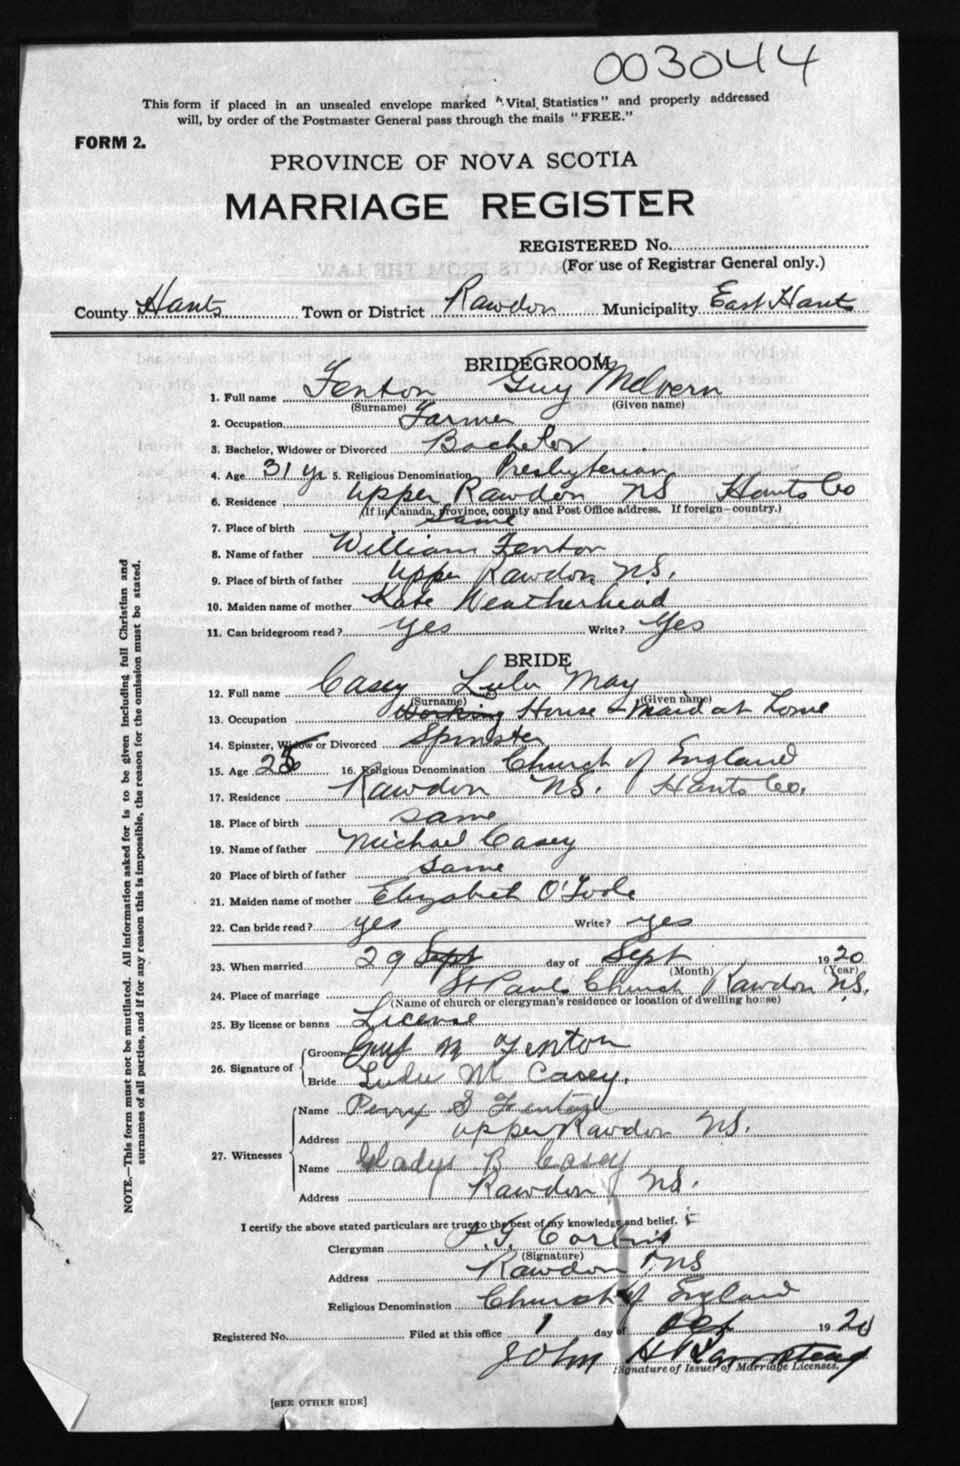 003044
This form if placed in an unsealed envelope marked "Vital Statistics" and properly addressed
will, by order of the Postmaster General pass through the mails "FREE."
FORM 2.
PROVINCE OF NOVA SCOTIA
MARRIAGE REGISTER
REGISTERED No.
(For use of Registrar General only.)
County Hants Town or District Rawdon Municipality East Hants
BRIDEGROOM
1. Full name Fenton Guy Melvern
(Surname) (Given name)
2. Occupation Farmer
3. Bachelor, Widower or Divorced Bachelor
4. Age 31 yr 5. Religious Denomination Presbyterian
6. Residence Upper Rawdon NS Hants Co
(If in Canada, province, county and Post Office address. If foreign—country.)
7. Place of birth Same
8. Name of father William Fenton
9. Place of birth of father Upper Rawdon N.S.
10. Maiden name of mother Kate Weatherhead
11. Can bridegroom read? Yes Write? Yes
BRIDE
12. Full name Casey Lulu May
(Surname) (Given name)
13. Occupation Working House Maid at home
14. Spinster, Widow or Divorced Spinster
15. Age 25 16. Religious Denomination Church of England
17. Residence Rawdon NS. Hants Co.
18. Place of birth same
19. Name of father Michael Casey
20 Place of birth of father Same
21. Maiden name of mother Elizabeth O'Toole
22. Can bride read? yes Write? yes
23. When married 29 Sept day of Sept 1920
(Month) (Year)
24. Place of marriage St Pauls Church Rawdon N.S.
(Name of church or clergyman's residence or location of dwelling house)
25. By license or banns License
26. Signature of
Groom Guy M Fenton
Bride Lulu M Casey.
27. Witnesses
Name Perry S Fenton
Address Upper Rawdon NS.
Name Gladys B Casey
Address Rawdon NS.
I certify the above stated particulars are true to the best of my knowledge and belief.
Clergyman
(Signature)
Address Rawdon NS
Religious Denomination Church of England
Registered No. Filed at this office 1 day of Oct 1920
John H
Signature of Issuer of Marriage Licenses.
[SEE OTHER SIDE]
NOTE.—This form must not be mutilated. All information asked for is to be given including full Christian and
surnames of all parties, and if for any reason this is impossible, the reason for the omission must be stated.